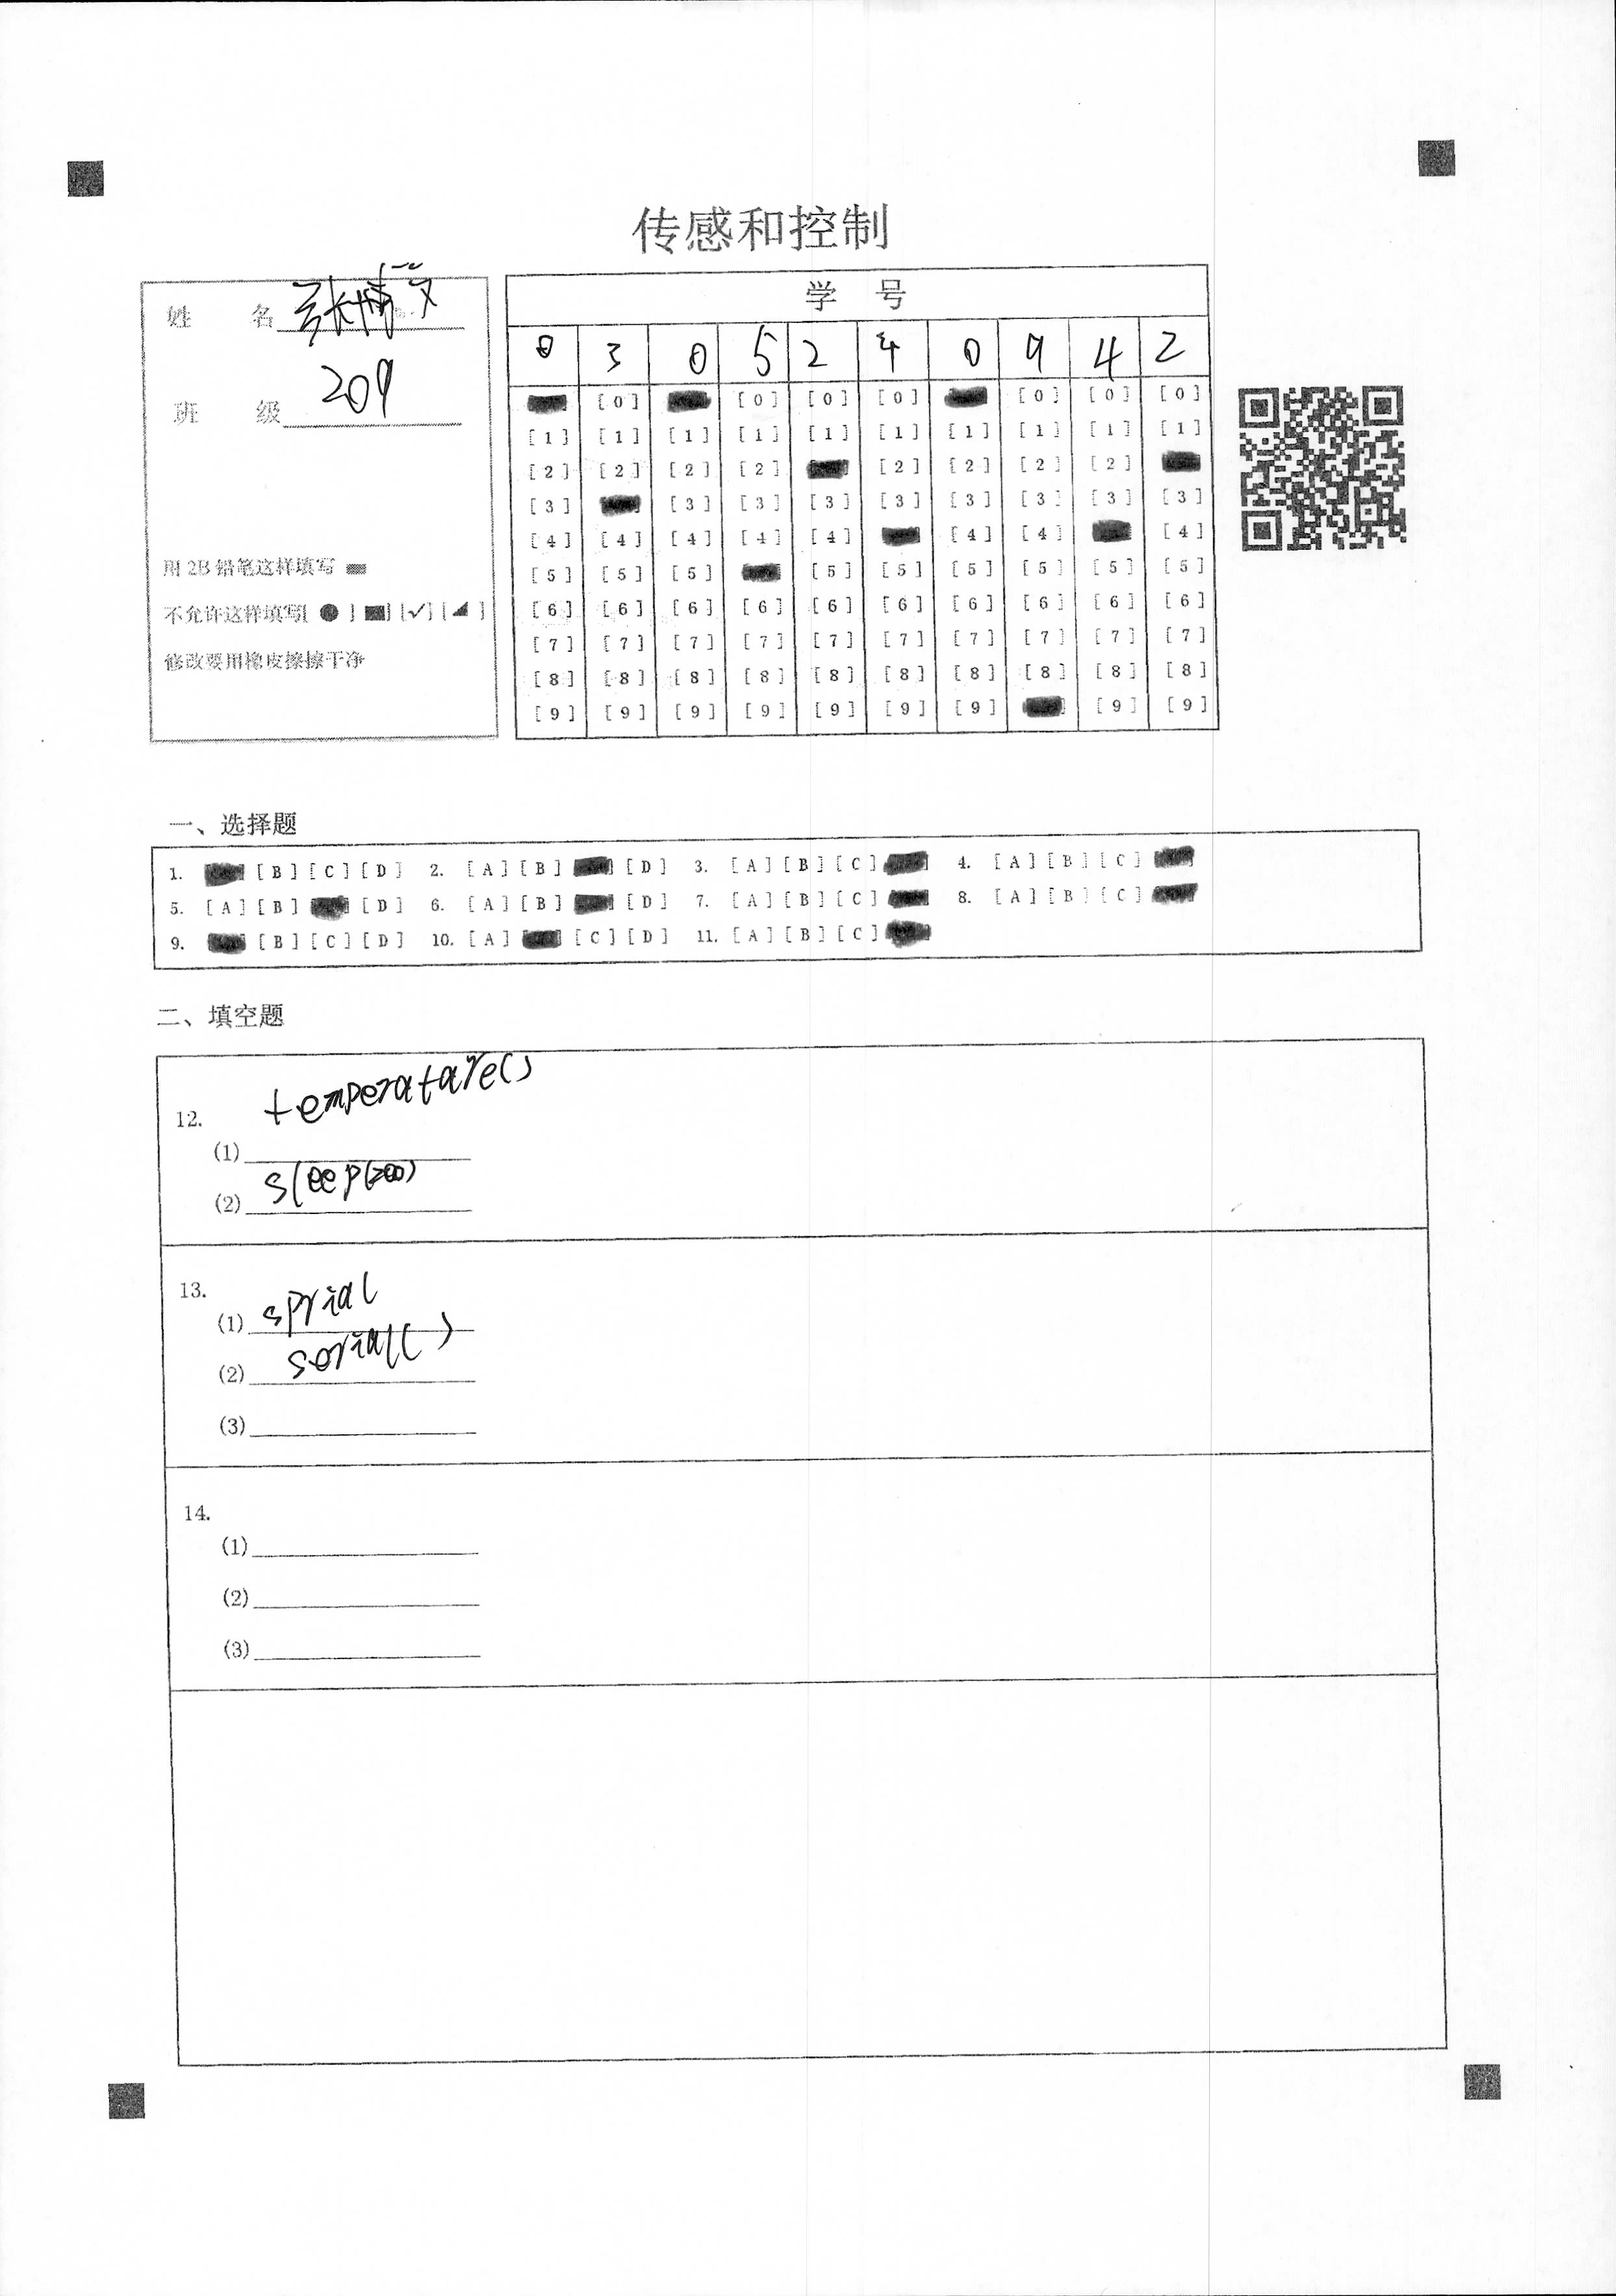 传感和控制
姓 名 张博文
班 级 209
用 2B 铅笔这样填写
不允许这样填写[ ● ] [■] [✓] [◢ ]
修改要用橡皮擦擦干净
学 号
0 3 0 5 2 4 0 9 4 2
[0] [0] [0] [0] [0] [0] [0]
[1] [1] [1] [1] [1] [1] [1] [1] [1] [1]
[2] [2] [2] [2] [2] [2] [2] [2]
[3] [3] [3] [3] [3] [3] [3] [3] [3]
[4] [4] [4] [4] [4] [4] [4] [4]
[5] [5] [5] [5] [5] [5] [5] [5] [5]
[6] [6] [6] [6] [6] [6] [6] [6] [6] [6]
[7] [7] [7] [7] [7] [7] [7] [7] [7] [7]
[8] [8] [8] [8] [8] [8] [8] [8] [8] [8]
[9] [9] [9] [9] [9] [9] [9] [9] [9]
一、选择题
1. [B] [C] [D] 2. [A] [B] [D] 3. [A] [B] [C] 4. [A] [B] [C]
5. [A] [B] [D] 6. [A] [B] [D] 7. [A] [B] [C] 8. [A] [B] [C]
9. [B] [C] [D] 10. [A] [C] [D] 11. [A] [B] [C]
二、填空题
12.
(1) temperatare()
(2) sleep(200)
13.
(1) sprial
(2) serial( )
(3)
14.
(1)
(2)
(3)